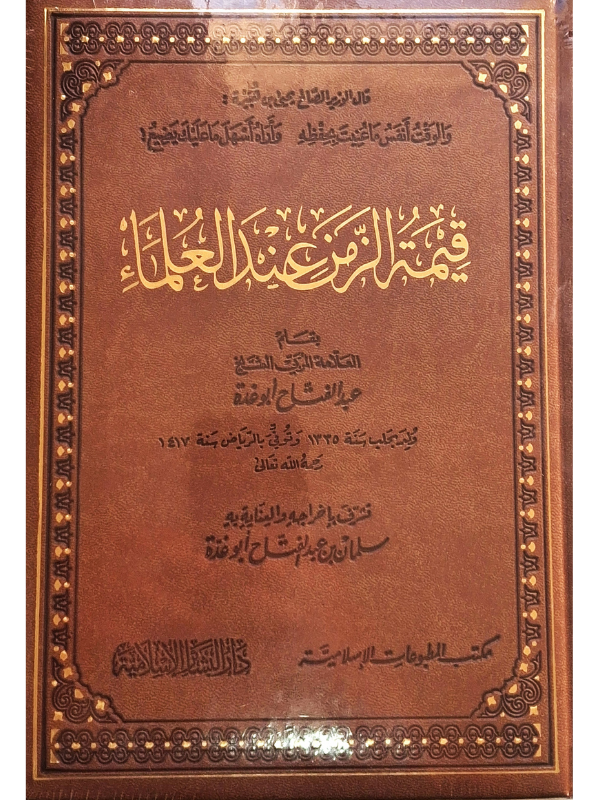 قال الوزير الصالح يحيى بن هبيرة :
والوقت أنفس ما عنيت بحفظه وأراه أسهل ما عليك يضيع !
قيمة الزمن عند العلماء
بقلم
العلامة المربي الشيخ
عبد الفتاح أبو غدة
ولد بحلب سنة ١٣٣٥ وتوفي بالرياض سنة ١٤١٧
رحمه الله تعالى
تشرف بإخراجه والعناية به
سلمان بن عبد الفتاح أبو غدة
مكتب المطبوعات الإسلامية
دار البشائر الإسلامية